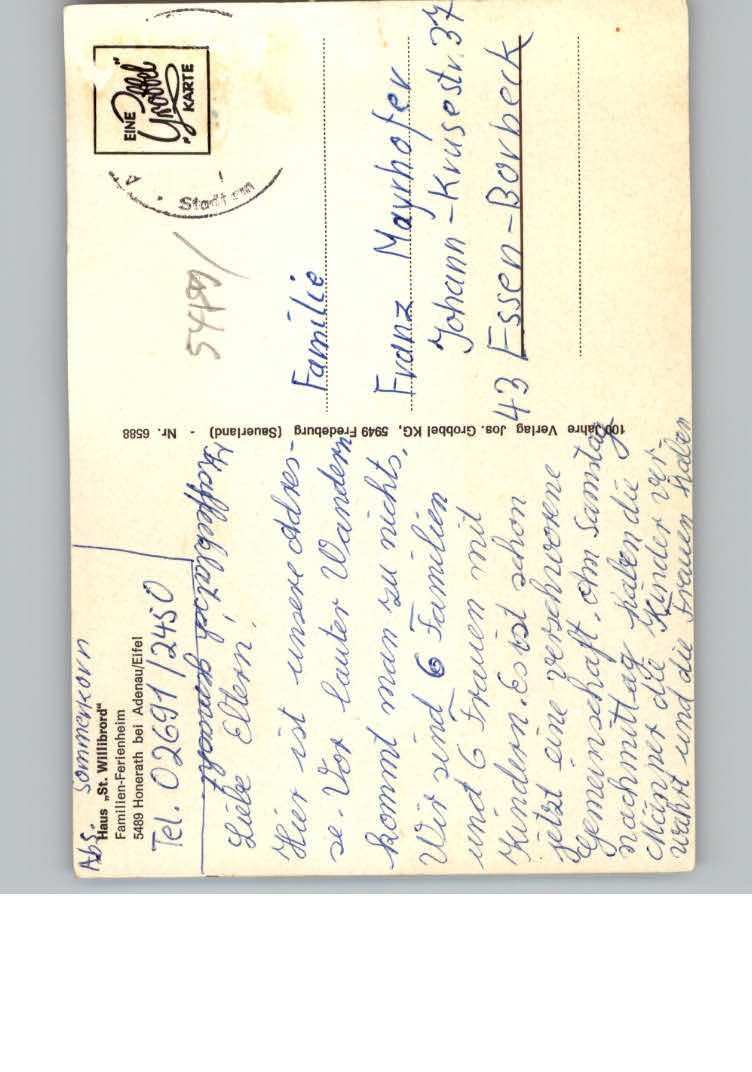 Abs. Sommerkorn
Haus „St. Willibrord"
Familien-Ferienheim
5489 Honerath bei Adenau/Eifel
Tel. 02691/2450
Liebe Eltern,
Hier ist unsere Adres-
se. Vor lauter Wandern
kommt man zu nichts.
Wir sind 6 Familien
und 6 Frauen mit
Kindern. Es ist schon
jetzt eine verschworene
Gemeinschaft. Am Samstag
nachmittag haben die
Männer die Kinder ver
wahrt und die Frauen haben
100 Jahre Verlag Jos. Grobbel KG, 5949 Fredeburg (Sauerland) - Nr. 6588
EINE
„Grobbel"
KARTE
Stadt am
Familie
Franz Mayrhofer
Johann-Krusestr. 37
43 Essen-Borbeck